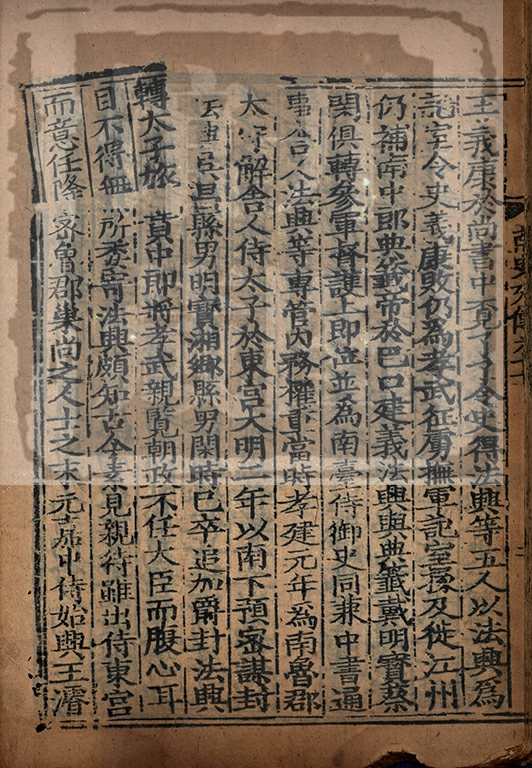 王義康於尚書中覓了了令史得法興等五人以法興為
記室令史義康敗仍為孝武征虜撫軍記室掾及徙江州
仍補南中郎典籤帝於巴口建義法興與典籤戴明寶蔡
閑俱轉參軍督護上即位並為南臺侍御史同兼中書通
事舍人法興等專管內務權重當時孝建元年為南魯郡
太守解舍人侍太子於東宮大明二年以南下預密謀封
法興吳昌縣男明寶湘鄉縣男閑時已卒追加爵封法興
轉太子旅賁中郎將孝武親覽朝政不任大臣而腹心耳
目不得無所委寄法興頗知古今素見親待雖出侍東宮
而意任隆密魯郡巢尚之人士之末元嘉中侍始興王濬